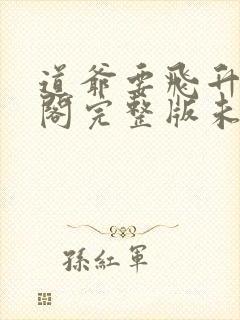 道爺要飛升
閣完整版未
孫紅軍